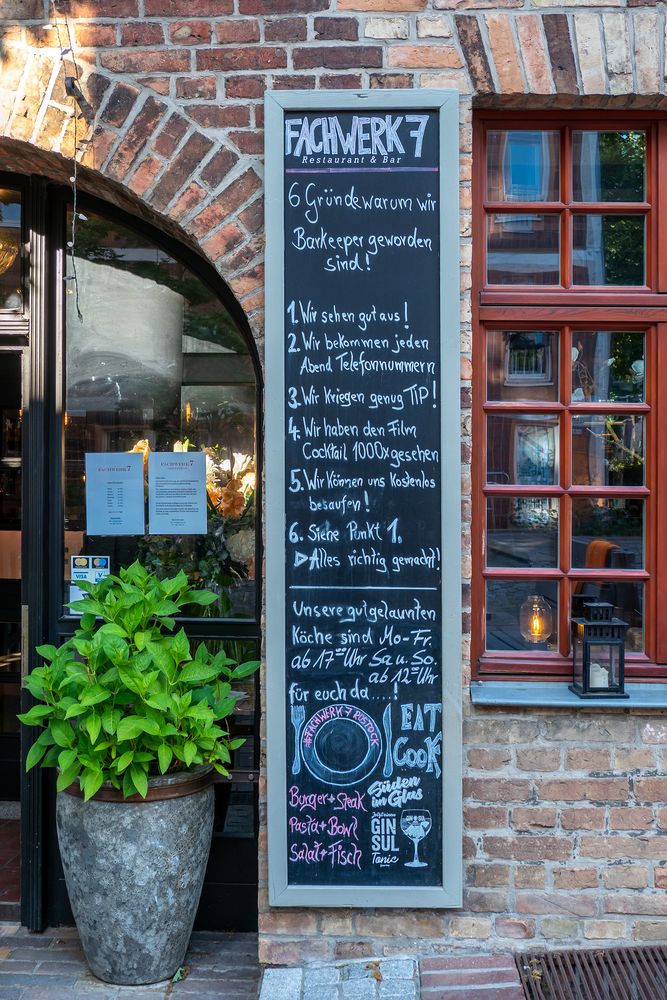 FACHWERK 7
Restaurant & Bar
6 Gründe warum wir
Barkeeper geworden
sind!
1. Wir sehen gut aus!
2. Wir bekommen jeden
Abend Telefonnummern
3. Wir kriegen genug TIP!
4. Wir haben den Film
Cocktail 1000x gesehen
5. Wir können uns kostenlos
besaufen!
6. Siehe Punkt 1.
Alles richtig gemacht!
Unsere gutgelaunten
Köche sind Mo-Fr.
ab 17=Uhr Sa u. So.
ab 12=Uhr
für euch da....!
#FACHWERK 7 ROSTOCK
EAT
COOK
Burger + Steak
Pasta + Bowl
Salat + Fisch
Süden
im Glas
GIN
SUL
Tonic
FACHWERK 7
FACHWERK 7
VISA
V